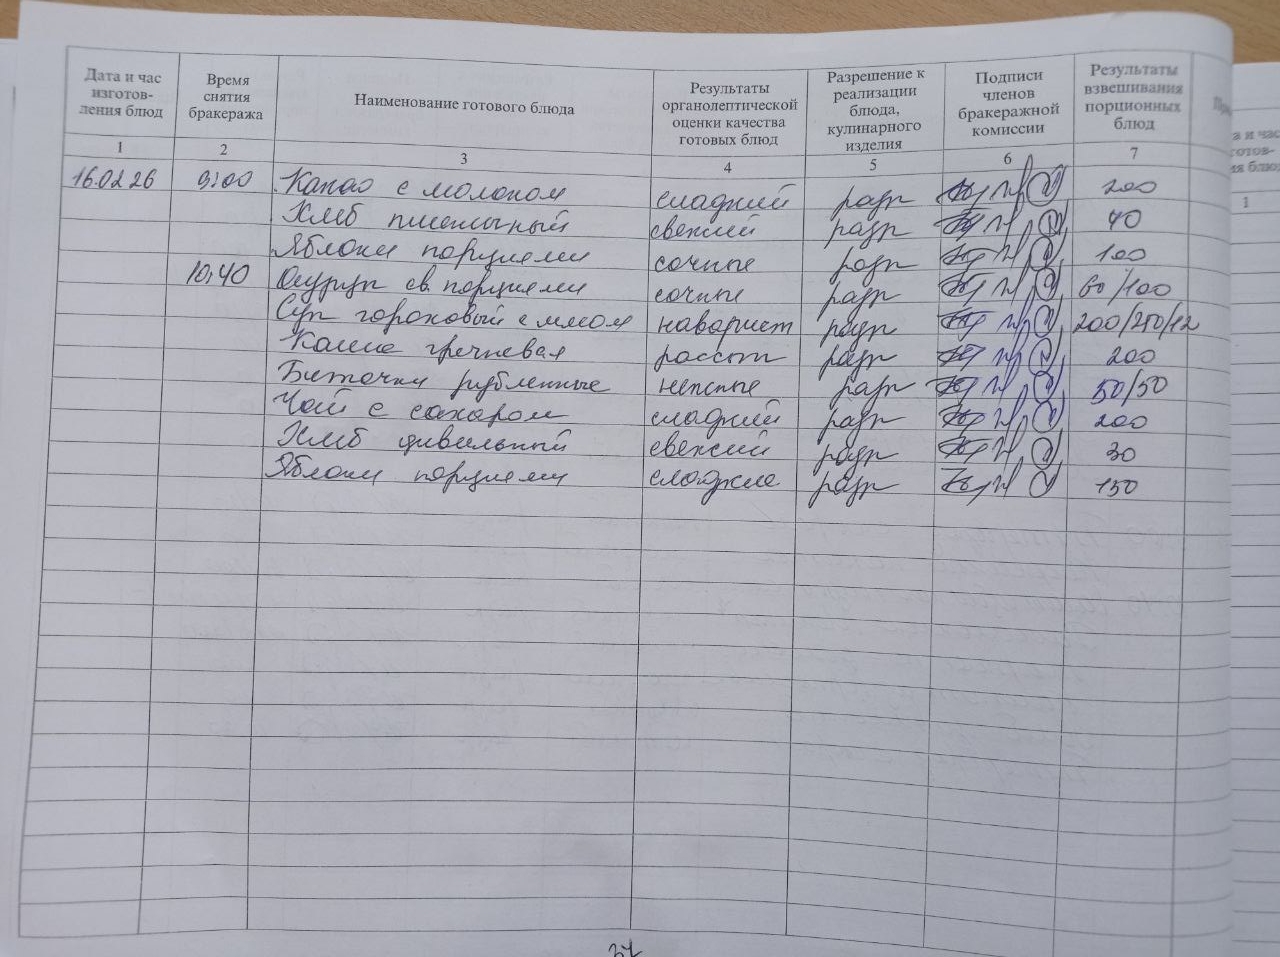 Дата и час изготов- ления блюд | Время снятия бракеража | Наименование готового блюда | Результаты органолептической оценки качества готовых блюд | Разрешение к реализации блюда, кулинарного изделия | Подписи членов бракеражной комиссии | Результаты взвешивания порционных блюд
1 2 3 4 5 6 7
16.02.26 9:00 Какао с молоком сладкий разр 200
Хлеб пшеничный свежий разр 40
Яблоки порциями сочные разр 100
10,40 Огурцы св. порциями сочные разр 60/100
Суп гороховый с мясом наварист разр 200/250/12
Каша гречневая рассып разр 200
Биточки рубленные разр 50/50
Чай с сахаром сладкий разр 200
Хлеб свежий разр 30
Яблоки порциями сладкие разр 150
37